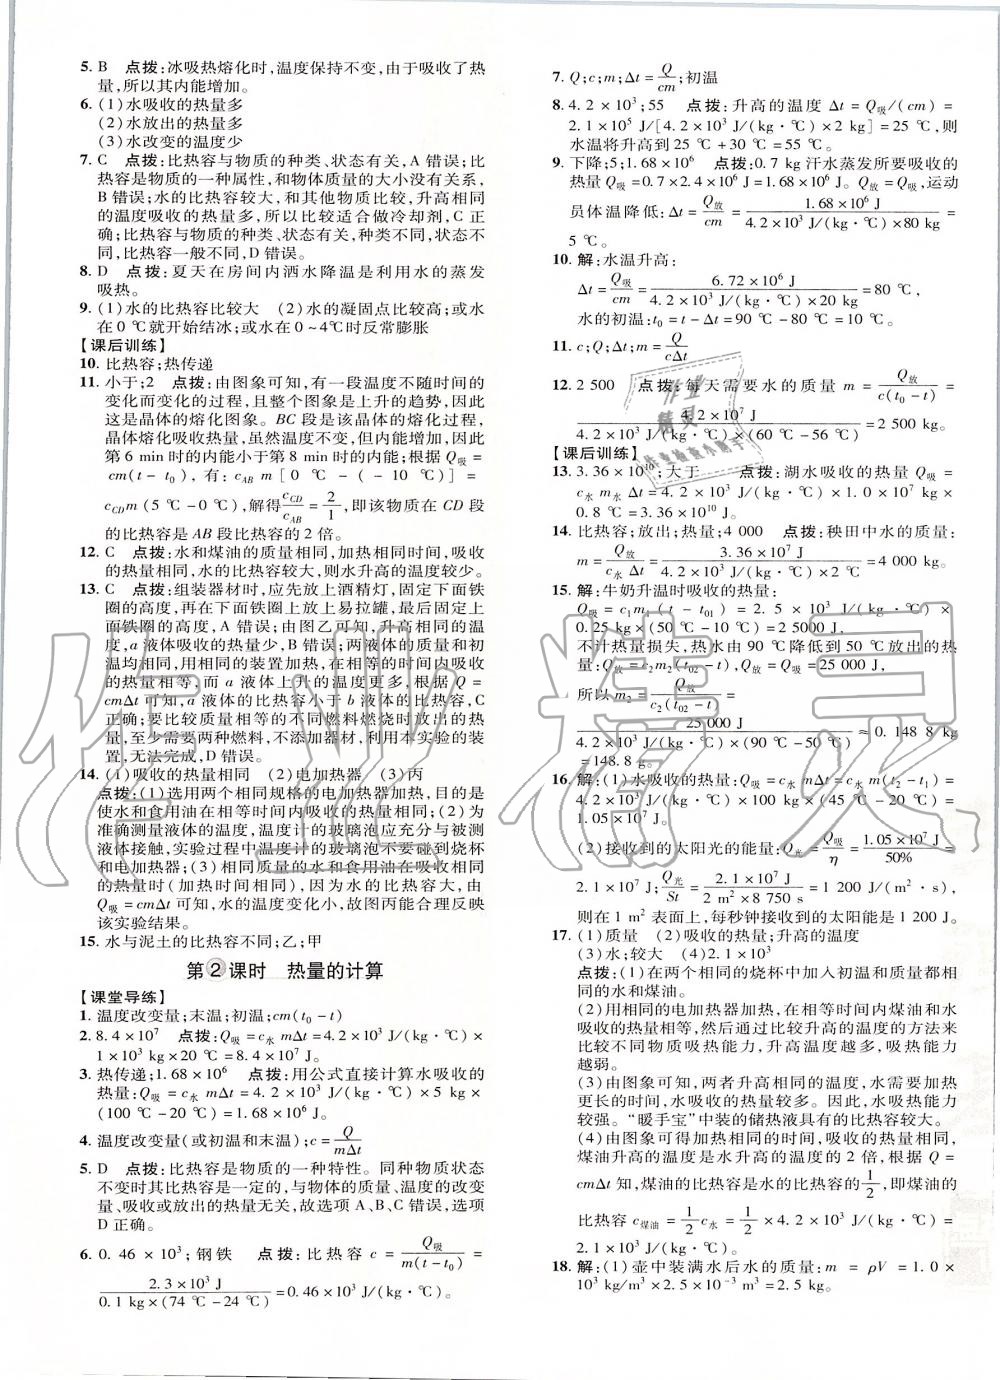 5. B　点拨:冰吸热熔化时,温度保持不变,由于吸收了热
量,所以其内能增加。
6. (1)水吸收的热量多
(2)水放出的热量多
(3)水改变的温度少
7. C　点拨:比热容与物质的种类、状态有关,A 错误;比
热容是物质的一种属性,和物体质量的大小没有关系,
B 错误;水的比热容较大,和其他物质比较,升高相同
的温度吸收的热量多,所以比较适合做冷却剂,C 正
确;比热容与物质的种类、状态有关,种类不同,状态不
同,比热容一般不同,D 错误。
8. D　点拨:夏天在房间内洒水降温是利用水的蒸发
吸热。
9. (1)水的比热容比较大　(2)水的凝固点比较高;或水
在 0 ℃就开始结冰;或水在 0~4℃时反常膨胀
【课后训练】
10. 比热容;热传递
11. 小于;2　点拨:由图象可知,有一段温度不随时间的
变化而变化的过程,且整个图象是上升的趋势,因此
这是晶体的熔化图象。BC 段是该晶体的熔化过程,
晶体熔化吸收热量,虽然温度不变,但内能增加,因此
第 6 min 时的内能小于第 8 min 时的内能;根据 Q吸 =
cm(t - t₀),有:c_AB m [0 ℃ - (- 10 ℃)] =
c_CD m(5 ℃-0 ℃),解得 c_CD/c_AB = 2/1,即该物质在 CD 段
的比热容是 AB 段比热容的 2 倍。
12. C　点拨:水和煤油的质量相同,加热相同时间,吸收
的热量相同,水的比热容较大,则水升高的温度较少。
13. C　点拨:组装器材时,应先放上酒精灯,固定下面铁
圈的高度,再在下面铁圈上放上易拉罐,最后固定上
面铁圈的高度,A 错误;由图乙可知,升高相同的温
度,a 液体吸收的热量少,B 错误;两液体的质量和初
温均相同,用相同的装置加热,在相等的时间内吸收
的热量相同,而 a 液体上升的温度更多,根据 Q =
cmΔt 可知,a 液体的比热容小于 b 液体的比热容,C
正确;要比较质量相等的不同燃料燃烧时放出的热
量,至少需要两种燃料,不添加器材,利用本实验的装
置,无法完成,D 错误。
14. (1)吸收的热量相同　(2)电加热器　(3)丙
点拨:(1)选用两个相同规格的电加热器加热,目的是
使水和食用油在相等时间内吸收的热量相同;(2)为
准确测量液体的温度,温度计的玻璃泡应充分与被测
液体接触,实验过程中温度计的玻璃泡不要碰到烧杯
和电加热器;(3)相同质量的水和食用油在吸收相同
的热量时(加热时间相同),因为水的比热容大,由
Q吸 = cmΔt 可知,水的温度变化小,故图丙能合理反映
该实验结果。
15. 水与泥土的比热容不同;乙;甲
第 2 课时　热量的计算
【课堂导练】
1. 温度改变量;末温;初温;cm(t₀-t)
2. 8.4×10⁷　点拨:Q吸=c水 mΔt=4.2×10³ J/(kg·℃)×
1×10³ kg×20 ℃=8.4×10⁷ J。
3. 热传递;1.68×10⁶　点拨:用公式直接计算水吸收的
热量:Q吸=c水 mΔt=4.2×10³ J/(kg·℃)×5 kg×
(100 ℃-20 ℃)=1.68×10⁶ J。
4. 温度改变量(或初温和末温);c=Q/mΔt
5. D　点拨:比热容是物质的一种特性。同种物质状态
不变时其比热容是一定的,与物体的质量、温度的改变
量、吸收或放出的热量无关,故选项 A、B、C 错误,选项
D 正确。
6. 0.46×10³;钢铁　点拨:比热容 c = Q吸/m(t-t₀) =
2.3×10³ J/0.1 kg×(74 ℃-24 ℃)=0.46×10³ J/(kg·℃)。
7. Q;c;m;Δt=Q/cm;初温
8. 4.2×10³;55　点拨:升高的温度 Δt = Q吸/(cm) =
2.1×10⁵ J/[4.2×10³ J/(kg·℃)×2 kg]=25 ℃,则
水温将升高到 25 ℃+30 ℃=55 ℃。
9. 下降;5;1.68×10⁶　点拨:0.7 kg 汗水蒸发所要吸收的
热量 Q吸=0.7×2.4×10⁶ J=1.68×10⁶ J。Q放=Q吸,运动
员体温降低:Δt=Q放/cm=1.68×10⁶ J/4.2×10³ J/(kg·℃)×80 kg=
5 ℃。
10. 解:水温升高:
Δt=Q吸/cm=6.72×10⁶ J/4.2×10³ J/(kg·℃)×20 kg=80 ℃,
水的初温:t₀=t-Δt=90 ℃-80 ℃=10 ℃。
11. c;Q;Δt;m=Q/cΔt
12. 2 500　点拨:每天需要水的质量 m = Q放/c(t₀-t) =
4.2×10⁷ J/4.2×10³ J/(kg·℃)×(60 ℃-56 ℃)=2 500 kg。
【课后训练】
13. 3.36×10¹⁰;大于　点拨:湖水吸收的热量 Q吸 =
c水 m水 Δt=4.2×10³ J/(kg·℃)×1.0×10⁷ kg×
0.8 ℃=3.36×10¹⁰ J。
14. 比热容;放出;热量;4 000　点拨:秧田中水的质量:
m=Q放/c水 Δt=3.36×10⁷ J/4.2×10³ J/(kg·℃)×2 ℃=4 000 kg。
15. 解:牛奶升温时吸收的热量:
Q吸=c₁m₁(t-t₀₁) = 2.5 × 10³ J/(kg·℃) ×
0.25 kg×(50 ℃-10 ℃)=2 5000 J,
不计热量损失,热水由 90 ℃降低到 50 ℃放出的热
量:Q放=c₂m₂(t₀₂-t),Q放=Q吸=25 000 J,
所以 m₂=Q放/c₂(t₀₂-t)=
25 000 J/4.2×10³ J/(kg·℃)×(90 ℃-50 ℃)≈0.148 8 kg
=148.8 g。
16. 解:(1)水吸收的热量:Q吸=c水 mΔt=c水 m(t₂-t₁)=
4.2×10³ J/(kg·℃)×100 kg×(45 ℃-20 ℃)=
1.05×10⁷ J。
(2)接收到的太阳光的能量:Q光=Q吸/η=1.05×10⁷ J/50%=
2.1×10⁷ J,Q光/St=2.1×10⁷ J/2 m²×8 750 s=1 200 J/(m²·s),
则在 1 m² 表面上,每秒钟接收的太阳能是 1 200 J。
17. (1)质量　(2)吸收的热量;升高的温度
(3)水;较大　(4)2.1×10³
点拨:(1)在两个相同的烧杯中加入初温和质量都相
同的水和煤油。
(2)用相同的电加热器加热,在相等时间内煤油和水
吸收的热量相等,然后通过比较升高的温度的方法来
比较不同物质吸热能力,升高温度越多,吸热能力
越弱。
(3)由图象可知,两者升高相同的温度,水需要加热
更长的时间,吸收的热量较多。因此,水吸热能力
较强。“暖手宝”中装的储热液具有的比热容较大。
(4)由图象可得加热相同的时间,吸收的热量相同,
煤油升高的温度是水升高的温度的 2 倍,根据 Q =
cmΔt 知,煤油的比热容是水的比热容的 1/2,即煤油的
比热容 c煤油=1/2 c水=1/2×4.2×10³ J/(kg·℃)=
2.1×10³ J/(kg·℃)。
18. 解:(1)壶中装满水后水的质量:m = ρV = 1.0 ×
10³ kg/m³×2.5×10⁻³ m³=2.5 kg。
作业精灵
作业
精灵
作业检查小助手